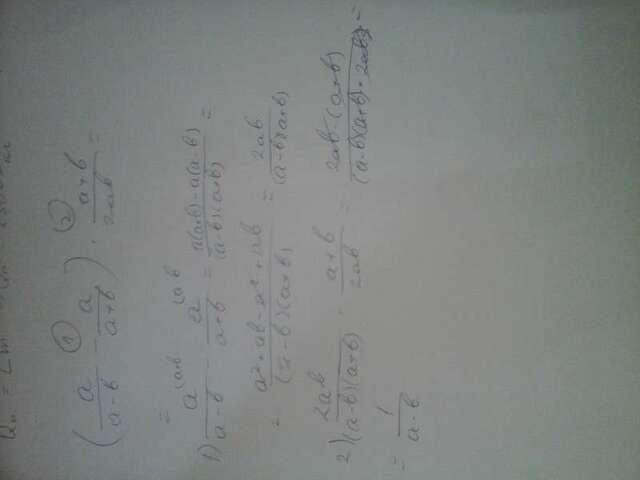 (a/(a-b) - a/(a+b)) · (a+b)/(2ab) =
① ②
=
1) a^(a+b/(a-b) - a^(a-b/(a+b) = (a(a+b)-a(a-b))/((a-b)(a+b)) =
= (a²+ab-a²+ab)/((a-b)(a+b)) = 2ab/((a-b)(a+b))
2) 2ab/((a-b)(a+b)) · (a+b)/(2ab) = (2ab·(a+b))/((a-b)(a+b)·2ab) =
= 1/(a-b)